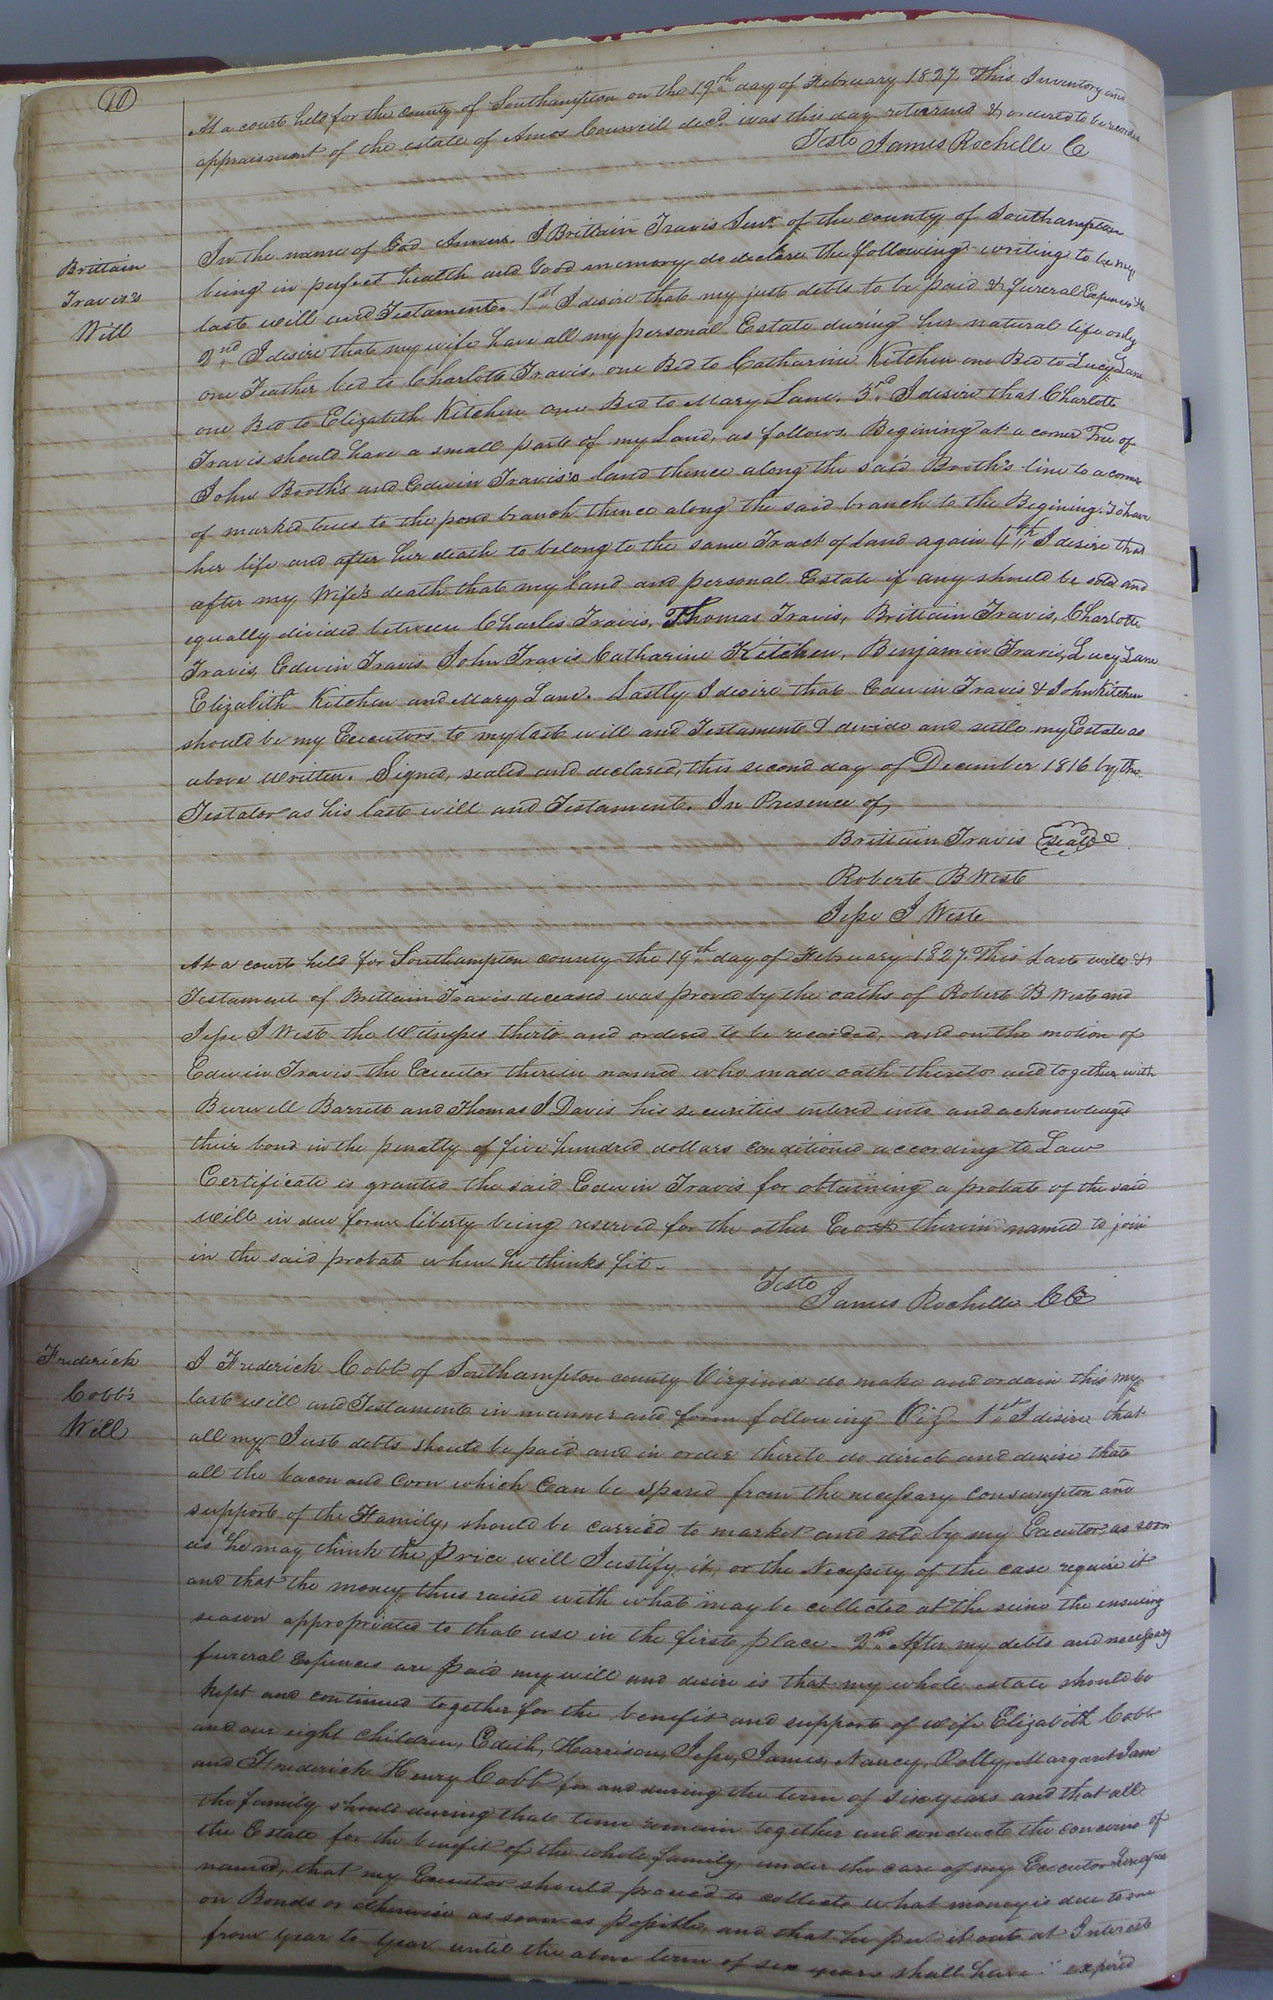 10
At a court held for the county of Southampton on the 19th day of February 1827. This Inventory and
appraisement of the estate of Amos Councill decd. was this day returned & ordered to be recorded
Teste James Rochelle C
Brittain
Travis's
Will
In the name of God Amen. I Brittain Travis Senr. of the county of Southampton
being in perfect health and Good memory do declare the following writing to be my
last will and Testament. 1st I desire that my just debts to be paid & funeral Expences &c
2nd I desire that my wife have all my personal Estate during her natural life only
one Feather bed to Charlotte Travis, one Bed to Catharine Kitchen one Bed to Lucy Lane
one Bed to Elizabeth Kitchen one Bed to Mary Lane. 3rd I desire that Charlotte
Travis should have a small parte of my Land, as follows. Begining at a corner Tree of
John Booth's and Edwin Travis's land thence along the said Booth's line to a corner
of marked trees to the pond branch thence along the said branch to the Begining. To have
her life and after her death to belong to the same Tract of Land again 4th I desire that
after my Wife's death that my Land and personal Estate if any should be sold and
equally divided between Charles Travis, Thomas Travis, Brittain Travis, Charlotte
Travis, Edwin Travis John Travis Catharine Kitchen, Benjamin Travis, Lucy Lane
Elizabeth Kitchen and Mary Lane. Lastly I desire that Edwin Travis & John Kitchen
should be my Executors to my last will and Testament & divide and settle my Estate as
above written. Signed, sealed and declared, this second day of December 1816 by the
Testator as his last will and Testament. In Presence of,
Brittain Travis seal
Robert B West
Jesse J West
At a court held for Southampton county the 19th day of February 1827. This Last will &
Testament of Brittain Travis deceased was proved by the oaths of Robert B West and
Jesse J West the Witnesses thereto and ordered to be recorded, and on the motion of
Edwin Travis the Executor therein named who made oath thereto and together with
Burwell Barrett and Thomas J Davis his securities entered into and acknowledged
their bond in the penalty of five hundred dollars conditioned according to Law
Certificate is granted the said Edwin Travis for obtaining a probate of the said
will in due form liberty being reserved for the other therein named to join
in the said probate when he thinks fit.
Teste
James Rochelle CC
Frederick
Cobb's
Will
I Frederick Cobb of Southampton county Virginia do make and ordain this my
last will and Testament in manner and form following Viz 1st I desire that
all my Just debts should be paid and in order thereto do direct and devise that
all the bacon and Corn which can be spared from the necessary consumption and
support of the Family, should be carried to market and sold by my Executor, as soon
as he may think the price will Justify it, or the Necessity of the case require it
and that the money thus raised with what may be collected at the seine the ensuing
season appropriated to that use in the first place. 2nd After my debts and necessary
funeral expences are paid my will and desire is that my whole estate should be
kept and continued together for the benefit and support of wife Elizabeth Cobb
and our eight children, Edith, Harrison, Jesse, James, Nancy, Polly, Margaret Jane
and Frederick Henry Cobb for and during the term of six years and that all
the family should during that time remain together and conduct the concerns of
the Estate for the benefit of the whole family, under the care of my Executor hereafter
named, that my Executor should proceed to collect what money is due to me
on Bonds or otherwise as soon as possible and that he put it out at Interest
from year to year until the above term of six years shall have expired